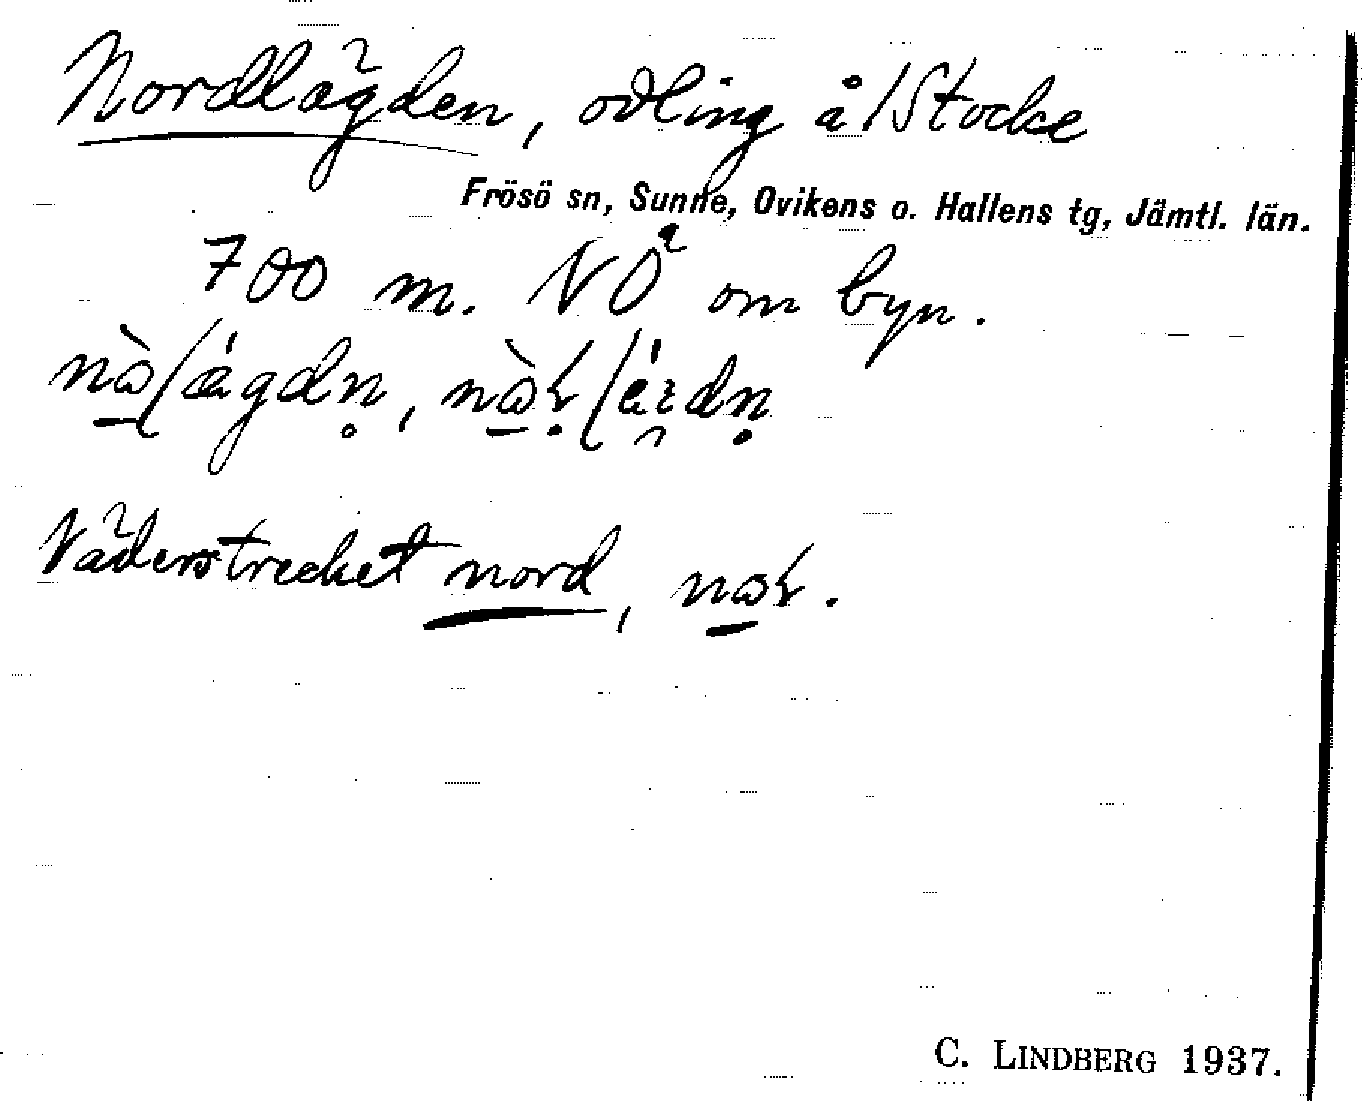 Nordlägden, odling å /Stocke
Frösö sn, Sunne, Ovikens o. Hallens tg, Jämtl. län.
700 m. NÖ om byn.
Väderstrecket nord,
C. LINDBERG 1937.